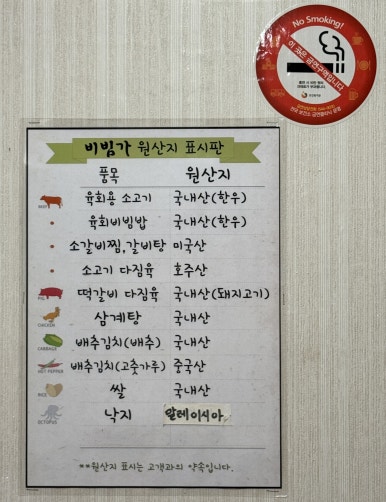 No Smoking!
이 곳은 금연구역입니다
비빔가 원산지 표시판
품목 원산지
BEEF 육회용 소고기 국내산(한우)
육회비빔밥 국내산(한우)
소갈비찜,갈비탕 미국산
소고기 다짐육 호주산
PIG 떡갈비 다짐육 국내산(돼지고기)
CHICKEN 삼계탕 국내산
CABBAGE 배추김치(배추) 국내산
HOT PEPPER 배추김치(고춧가루) 중국산
RICE 쌀 국내산
OCTOPUS 낙지 말레이시아
**원산지 표시는 고객과의 약속입니다.